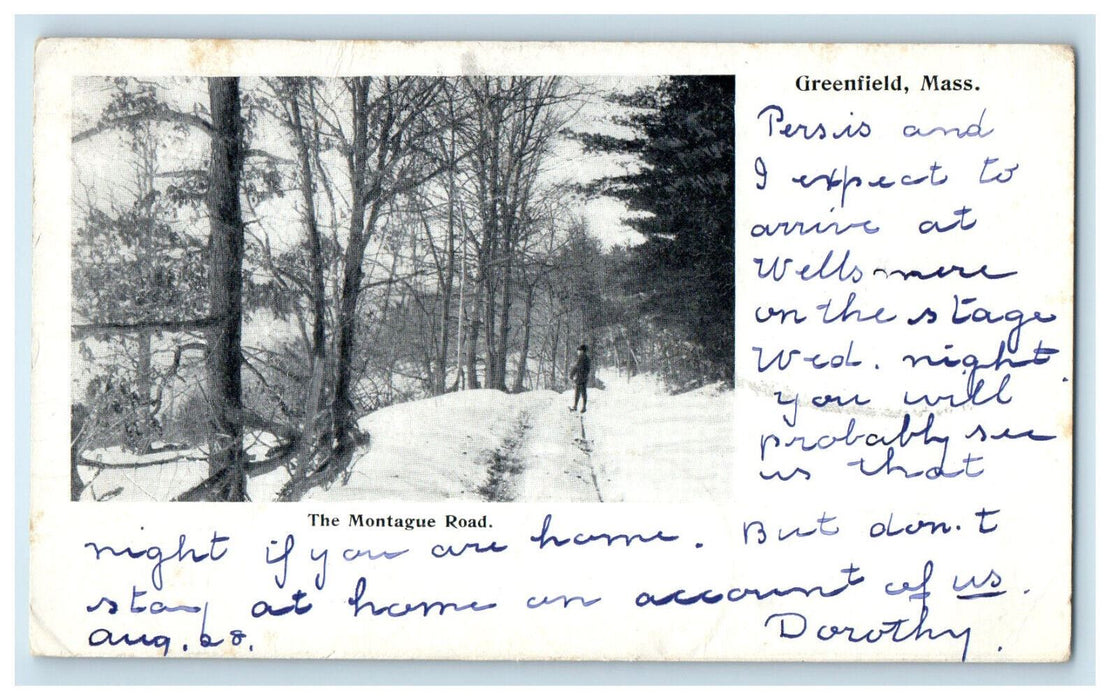 Greenfield, Mass.
Persis and
I expect to
arrive at
Wellsmere
on the stage
Wed. night.
you will
probably see
us that
The Montague Road.
night if you are home. But don't
stay at home on account of us.
Aug. 28. Dorothy.